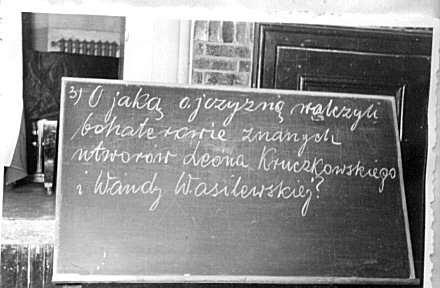 3) O jaką ojczyznę walczyli
bohaterowie znanych
utworów Leona Kruczkowskiego
i Wandy Wasilewskiej?